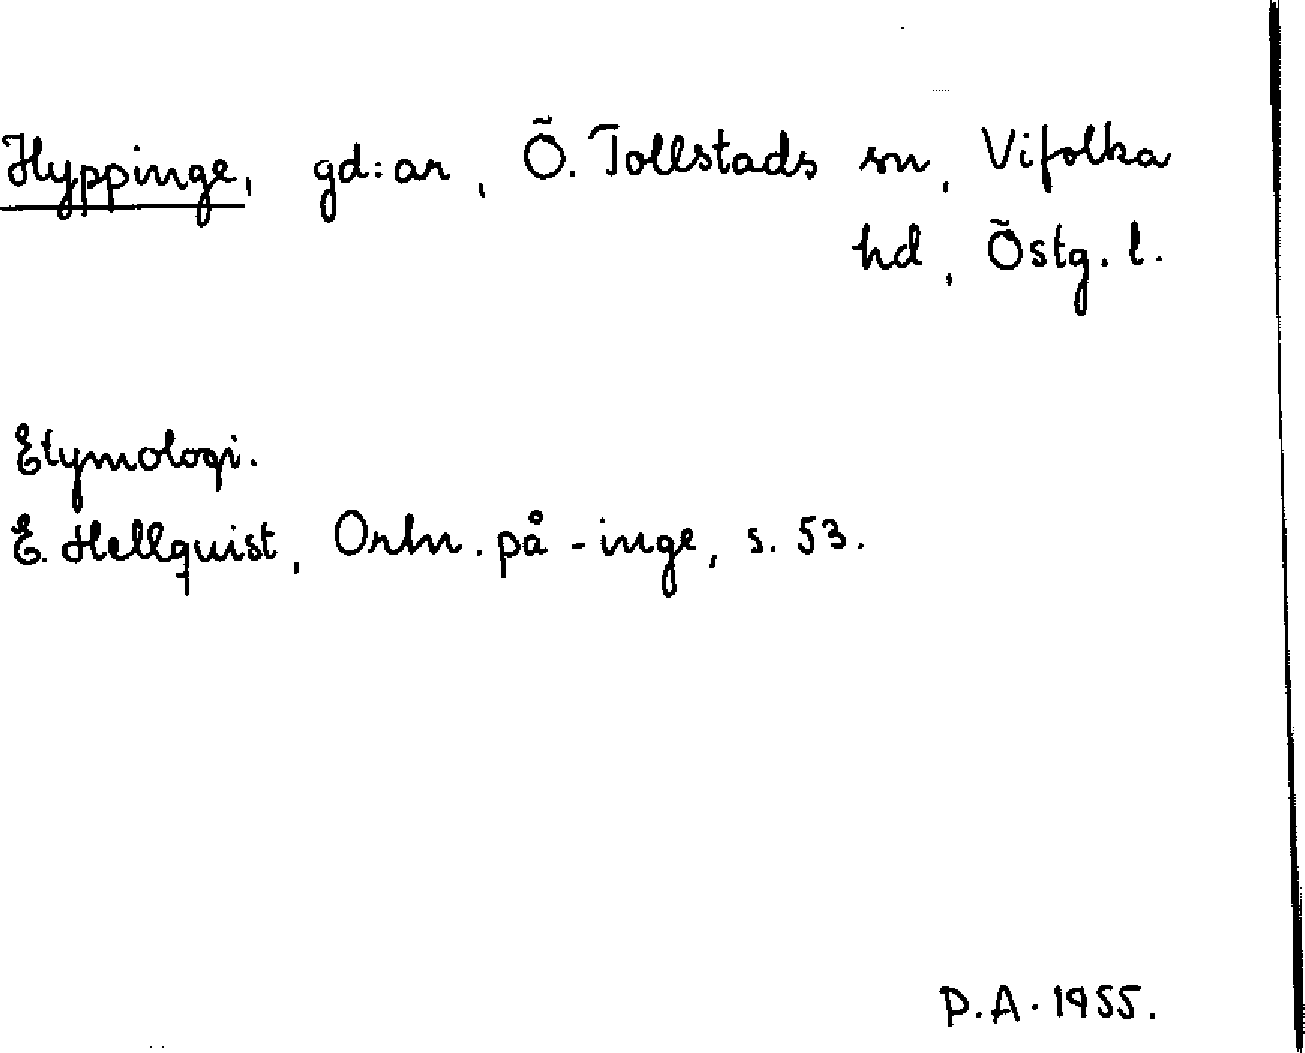 Hyppinge, gd:ar, Ö. Tollstads sn, Vifolka
hd, Östg. l.
Etymologi.
E. Hellquist, Ortn. på -inge, s. 53.
P.A. 1955.